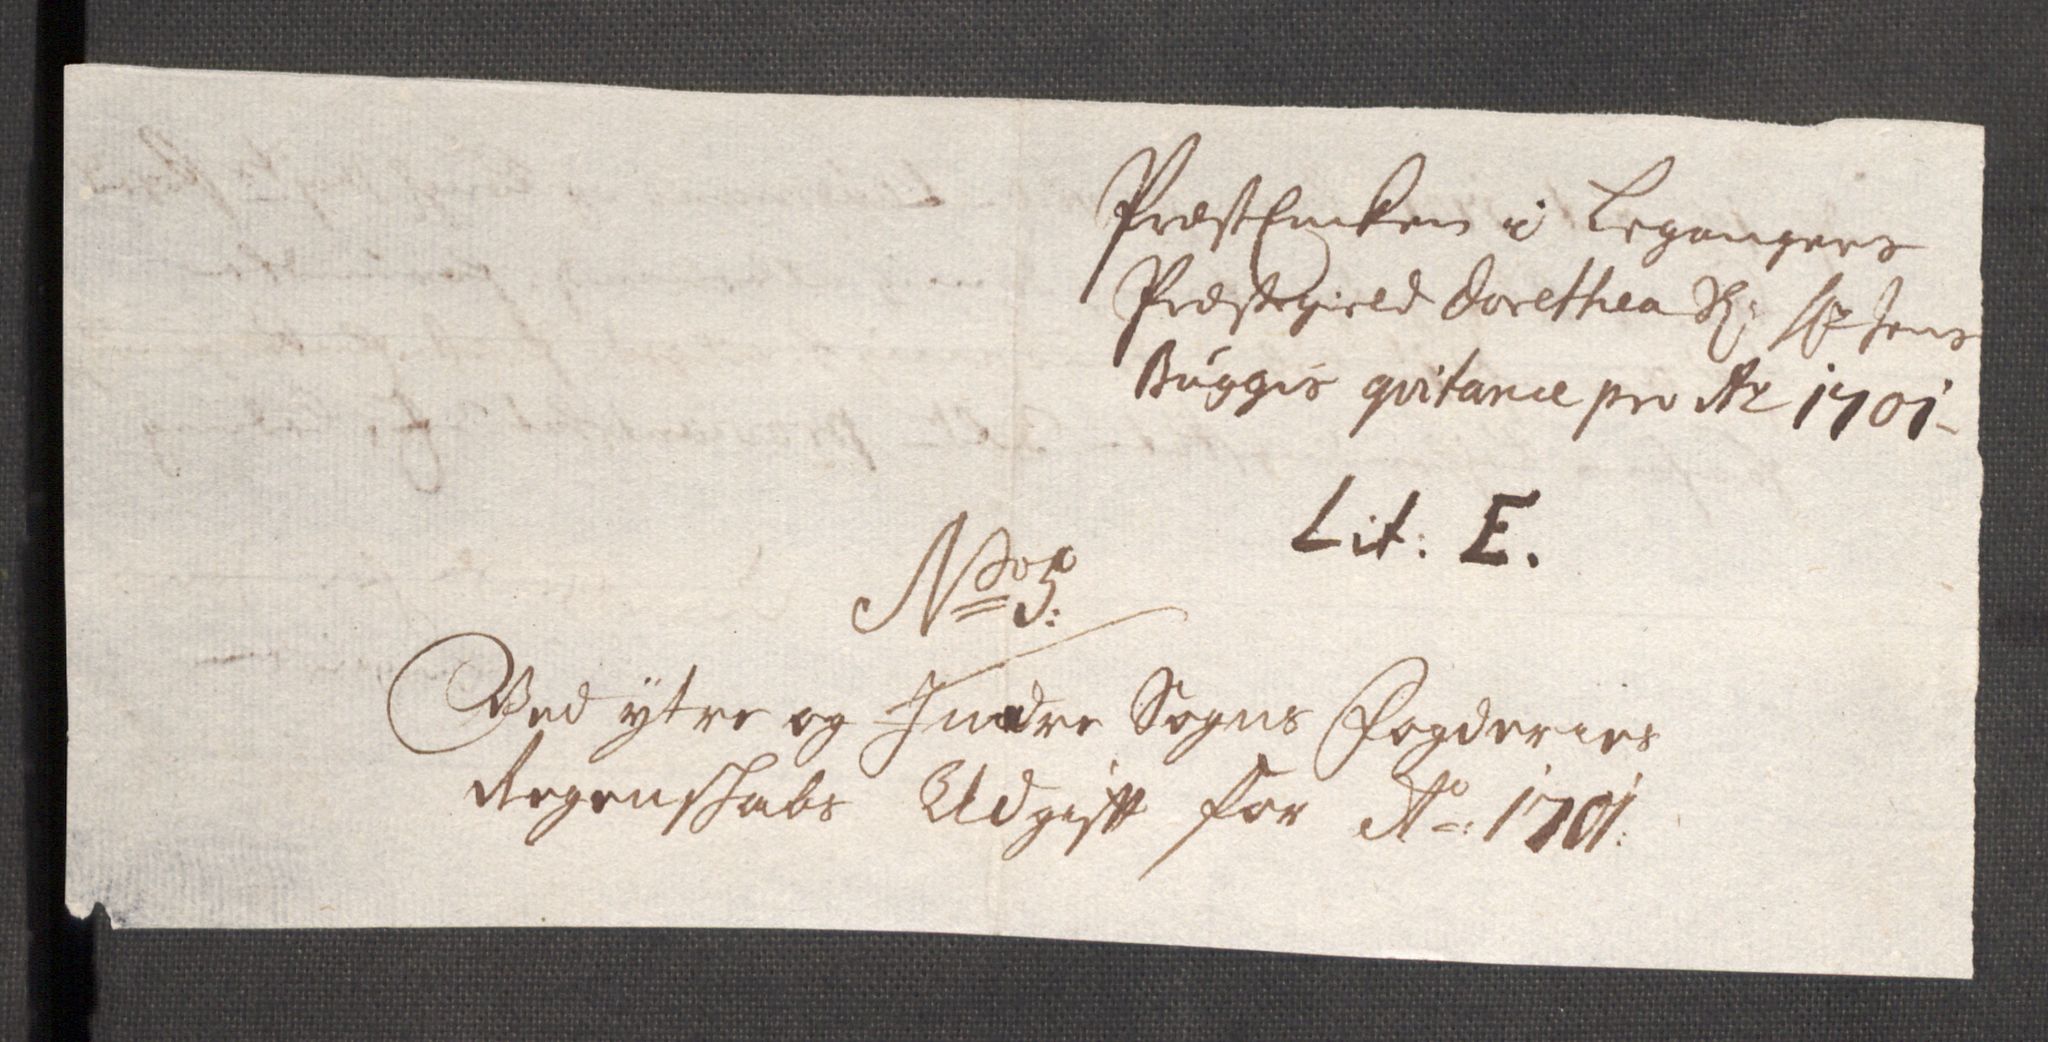 PræstEncken i Legangers
Præstegield Dorethea Sl: Hr Jens
Buggis qvitance pro Ao 1701
Lit: E.
No 5:
Ved ytre og Indre Sogns Fogderies
Regenskabs Udgift for Ao: 1701: